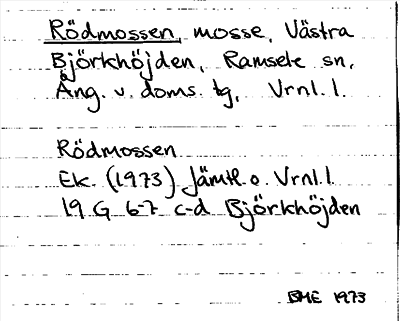 Rödmossen, mosse, Västra
Björkhöjden, Ramsele sn,
Ång. v. doms. tg, Vrnl. l.
Rödmossen
Ek. (1973) Jämtl. o. Vrnl. l.
19 G 6-7 c-d Björkhöjden
BME 1973